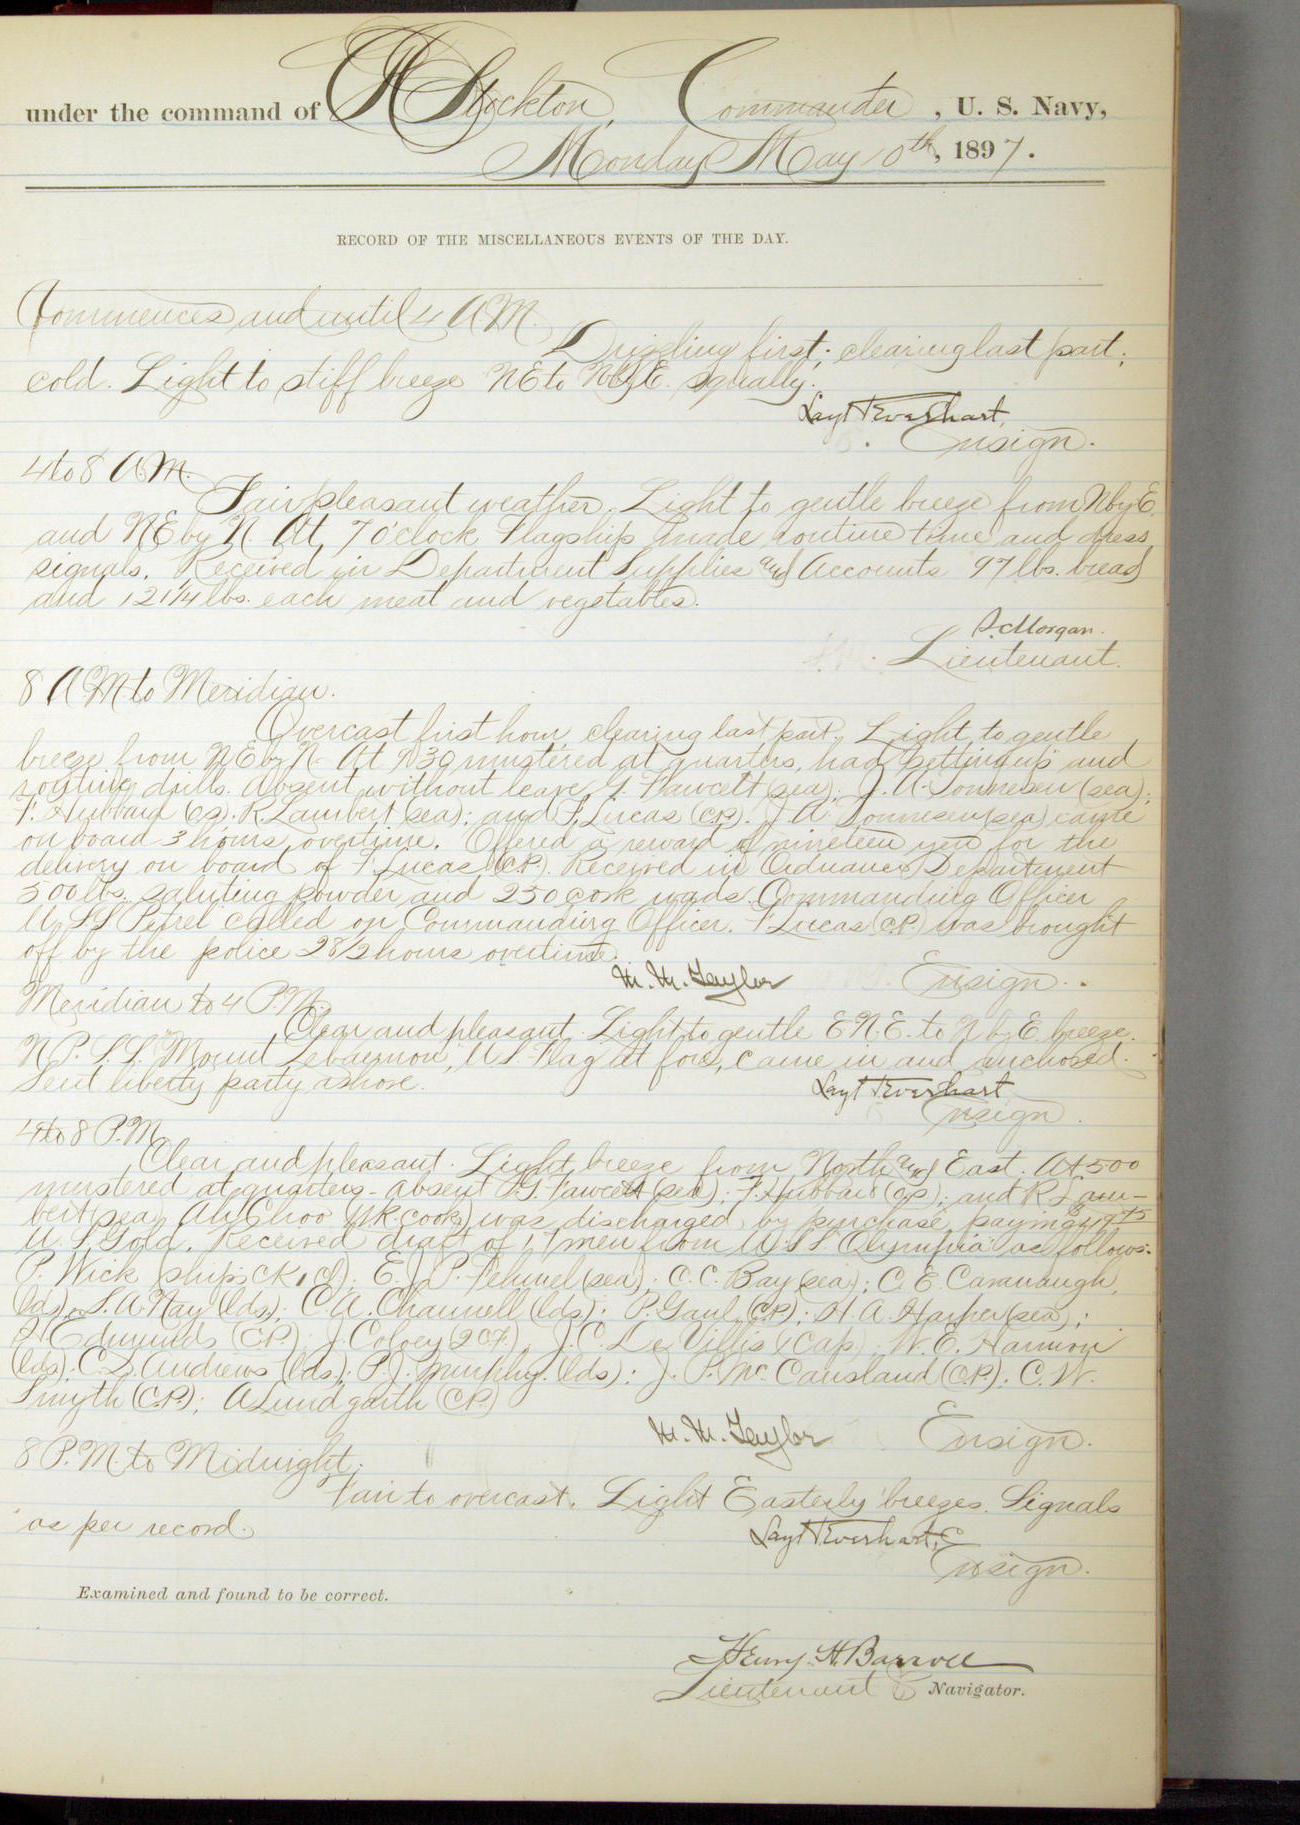 under the command of C H Stockton, Commander, U. S. Navy,
Monday May 10th, 1897.
RECORD OF THE MISCELLANEOUS EVENTS OF THE DAY.
Commences and until 4 A M.
Drizzling first; clearing last part;
cold. Light to stiff breeze NE to NbyE. squally.
Lay H Everhart,
Ensign.
4 to 8 A.M.
Fair pleasant weather. Light to gentle breeze from NbyE.
and NE by N. At 7 o'clock Flagship made routine time and dress
signals. Received in Department Supplies and Accounts 97 lbs. bread
and 121 1/4 lbs. each meat and vegetables.
Lieutenant.
8 A M to Meridian.
Overcast first hour, clearing last part. Light to gentle
breeze from NE by N. At 930 mustered at quarters, had "setting up" and
routine drills. Absent without leave G. Fawcett (sea); J. A. Tonnesen (sea);
F. Hubbard (cp); R Lambert (sea); and F. Lucas (CP). J A Tonnesen (sea) came
on board 3 hours overtime. Offered a reward of nineteen yen for the
delivery on board of F Lucas (C.P.). Received in Ordnance Department
500 lbs. saluting powder and 250 cork wads. Commanding Officer
U.S.S Petrel called on Commanding Officer. F Lucas (C.P.) was brought
off by the police 28 1/2 hours overtime.
M. M. Taylor Ensign.
Meridian to 4 P.M.
Clear and pleasant. Light to gentle E.N.E. to N by E breeze.
N.P. S.S. "Mount Lebannon", U S Flag at fore, came in and anchored.
Sent liberty party ashore.
Lay H Everhart
Ensign.
4 to 8 P.M.
Clear and pleasant. Light breeze from North and East. At 500
mustered at quarters - absent G. Fawcett (sea); F. Hubbard (cp); and R Lam-
bert (sea). Ah Choo (W.R. cook) was discharged by purchase, paying
U. S. Gold. Received draft of 17 men from U.S.S. Olympia as follows:
P. Wick (ships ck, cl); E. J. P. (sea); C. C. Bay (sea); C. E. Cavanaugh,
(lds); S. A. Nay (lds); C. A. Channell (lds); P. Gaul (C.P.); H. A. Harper (sea);
Edmunds (C.P.); J. (2 CF); J. C. De Villis (Cap); W. E. Harmon
(lds); C. D. Andrews (lds); P. J. Murphy (lds); J. P. Mc Causland (C.P.); C. W.
Smyth (C.P.); A Lundgarth (C.P.)
M. M. Taylor Ensign.
8 P.M. to Midnight.
Fair to overcast. Light Easterly breezes. Signals
as per record.
Lay H Everhart,
Ensign.
Examined and found to be correct.
Henry H. Barroll
Lieutenant & Navigator.